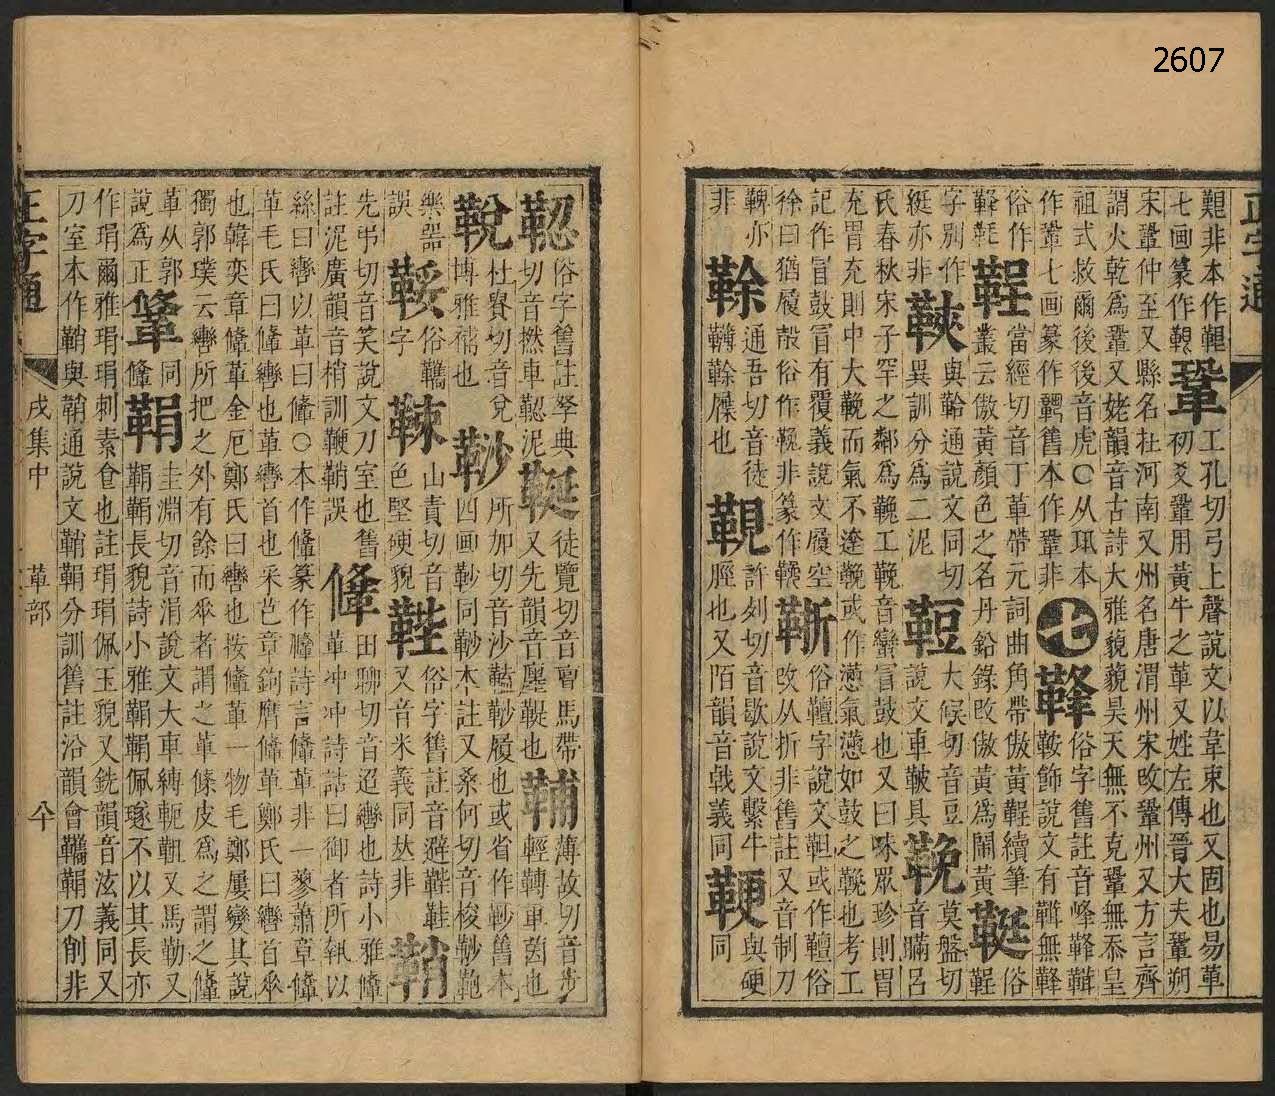 艱非本作
七画篆作
鞏
工孔切弓上聲說文以韋束也又固也易革
初爻鞏用黃牛之革又姓左傳晉大夫鞏朔
宋鞏仲至又縣名杜河南又州名唐渭州宋改鞏州又方言齊
謂火乾爲鞏又姥韻音古詩大雅藐藐昊天無不克鞏無忝皇
祖式救爾後後音虎〇从巩本
作鞏七画篆作舊本作鞏非
七
俗字舊註音峰
鞍飾說文有無
俗作
鞓
當經切音丁革帶元詞曲角帶傲黃鞓續筆
叢云傲黃顏色之名丹鉛錄改傲黃爲閙黃
俗
鞓
字別作
綎亦非
與鞈通說文同切
異訓分爲二泥
大候切音豆
說文車鞁具
鞔
莫盤切
音瞞呂
氏春秋宋子罕之鄰爲鞔工鞔音蠻冒鼓也又曰味眾珍則胃
充胃充則中大鞔而氣不達鞔或作懣氣懣如鼓之鞔也考工
記作冒鼓冒有覆義說文履空
徐曰猶履殼俗作鞔非篆作
俗字說文靼或作俗
改从折非舊註又音制刀
鞞亦
非
通吾切音徒
屧也
許刻切音歇說文繫牛
脛也又陌韻音戟義同
鞕
與硬
同
俗字舊註拏典
切音撚車泥
徒覽切音窞馬帶
又先韻音廛鞮也
薄故切音步
輕轉車茵也
杜賽切音兌
博雅襦也
所加切音沙鞵履也或省作舊本
四画同本註又桑何切音梭
樂器
誤
俗鞿
字
山責切音
色堅硬貌
俗字舊註音避鞋
又音米義同𠀤非
鞘
先弔切音笑說文刀室也舊
註泥廣韻音梢訓鞭鞘誤
鞗
田聊切音迢轡也詩小雅鞗
革沖沖詩詁曰御者所執以
絲曰轡以革曰鞗〇本作鞗篆作詩言鞗革非一蓼蕭章鞗
革毛氏曰鞗轡也革轡首也采芑章鉤膺鞗革鄭氏曰轡首𠂹
也韓奕章鞗革金厄鄭氏曰轡也按鞗革一物毛鄭屢變其說
獨郭璞云轡所把之外有餘而𠂹者謂之革鞗皮爲之謂之鞗
革从郭
說爲正
同
鞗
鞙
圭淵切音涓說文大車縛軛靼又馬勒又
鞙鞙長貌詩小雅鞙鞙佩璲不以其長亦
作琄爾雅琄琄刺素食也註琄琄佩玉貌又銑韻音泫義同又
刀室本作鞘與韒通說文鞘鞙分訓舊註沿韻會鞙刀削非
正字通
戌集中
革部
八十
2607